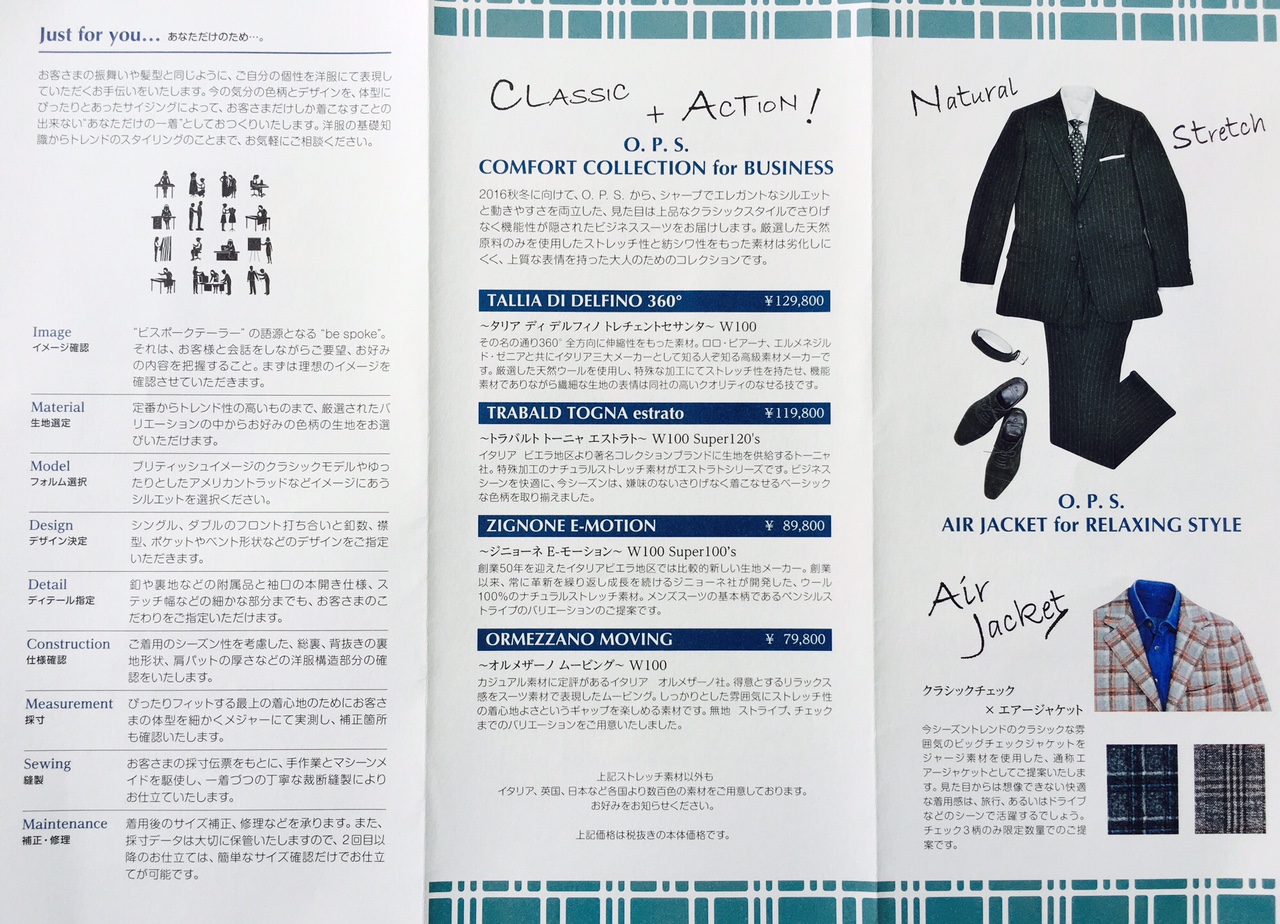 Just for you… あなただけのため…。
お客さまの振舞いや髪型と同じように、ご自分の個性を洋服にて表現し
ていただくお手伝いをいたします。今の気分の色柄とデザインを、体型に
ぴったりとあったサイジングによって、お客さまだけしか着こなすことの
出来ない“あなただけの一着”としておつくりいたします。洋服の基礎知
識からトレンドのスタイリングのことまで、お気軽にご相談ください。
Image
イメージ確認
“ビスポークテーラー” の語源となる “be spoke”。
それは、お客様と会話をしながらご要望、お好み
の内容を把握すること。まずは理想のイメージを
確認させていただきます。
Material
生地選定
定番からトレンド性の高いものまで、厳選されたバ
リエーションの中からお好みの色柄の生地をお選
びいただけます。
Model
フォルム選択
ブリティッシュイメージのクラシックモデルやゆっ
たりとしたアメリカントラッドなどイメージにあう
シルエットを選択ください。
Design
デザイン決定
シングル、ダブルのフロント打ち合いと釦数、襟
型、ポケットやベント形状などのデザインをご指定
いただきます。
Detail
ディテール指定
釦や裏地などの附属品と袖口の本開き仕様、ス
テッチ幅などの細かな部分までも、お客さまのこ
だわりをご指定いただけます。
Construction
仕様確認
ご着用のシーズン性を考慮した、総裏、背抜きの裏
地形状、肩パットの厚さなどの洋服構造部分の確
認をいたします。
Measurement
採寸
ぴったりフィットする最上の着心地のためにお客さ
まの体型を細かくメジャーにて実測し、補正箇所
も確認いたします。
Sewing
縫製
お客さまの採寸伝票をもとに、手作業とマシーンメ
イドを駆使し、一着づつの丁寧な裁断縫製により
お仕立ていたします。
Maintenance
補正・修理
着用後のサイズ補正、修理などを承ります。また、
採寸データは大切に保管いたしますので、2回目以
降のお仕立ては、簡単なサイズ確認だけでお仕立
てが可能です。
CLASSIC
+ ACTION!
O. P. S.
COMFORT COLLECTION for BUSINESS
2016秋冬に向けて、O. P. S. から、シャープでエレガントなシルエット
と動きやすさを両立した、見た目は上品なクラシックスタイルでさりげ
なく機能性が隠されたビジネススーツをお届けします。厳選した天然
原料のみを使用したストレッチ性と紡シワ性をもった素材は劣化しに
くく、上質な表情を持った大人のためのコレクションです。
TALLIA DI DELFINO 360° ¥129,800
～タリア ディ デルフィノ トレチェントセサンタ～ W100
その名の通り360° 全方向に伸縮性をもった素材。ロロ・ピアーナ、エルメネジル
ド・ゼニアと共にイタリア三大メーカーとして知る人ぞ知る高級素材メーカーで
す。厳選した天然ウールを使用し、特殊な加工にてストレッチ性を持たせ、機能
素材でありながら繊細な生地の表情は同社の高いクオリティのなせる技です。
TRABALD TOGNA estrato ¥119,800
～トラバルト トーニャ エストラト～ W100 Super120's
イタリア ビエラ地区より著名コレクションブランドに生地を供給するトーニャ
社。特殊加工のナチュラルストレッチ素材がエストラトシリーズです。ビジネス
シーンを快適に、今シーズンは、嫌味のないさりげなく着こなせるベーシック
な色柄を取り揃えました。
ZIGNONE E-MOTION ¥ 89,800
～ジニョーネ E-モーション～ W100 Super100's
創業50年を迎えたイタリアビエラ地区では比較的新しい生地メーカー。創業
以来、常に革新を繰り返し成長を続けるジニョーネ社が開発した、ウール
100%のナチュラルストレッチ素材。メンズスーツの基本柄であるペンシルス
トライプのバリエーションのご提案です。
ORMEZZANO MOVING ¥ 79,800
～オルメザーノ ムービング～ W100
カジュアル素材に定評があるイタリア オルメザーノ社。得意とするリラックス
感をスーツ素材で表現したムービング。しっかりとした雰囲気にストレッチ性
の着心地よさというギャップを楽しめる素材です。無地 ストライプ、チェック
までのバリエーションをご用意いたしました。
上記ストレッチ素材以外も
イタリア、英国、日本など各国より数百色の素材をご用意しております。
お好みをお知らせください。
上記価格は税抜きの本体価格です。
Natural
Stretch
O. P. S.
AIR JACKET for RELAXING STYLE
Air
Jacket
クラシックチェック
× エアージャケット
今シーズントレンドのクラシックな雰
囲気のビッグチェックジャケットを
ジャージ素材を使用した、通称エ
アージャケットとしてご提案いたしま
す。見た目からは想像できない快適
な着用感は、旅行、あるいはドライブ
などのシーンで活躍するでしょう。
チェック3柄のみ限定数量でのご提
案です。